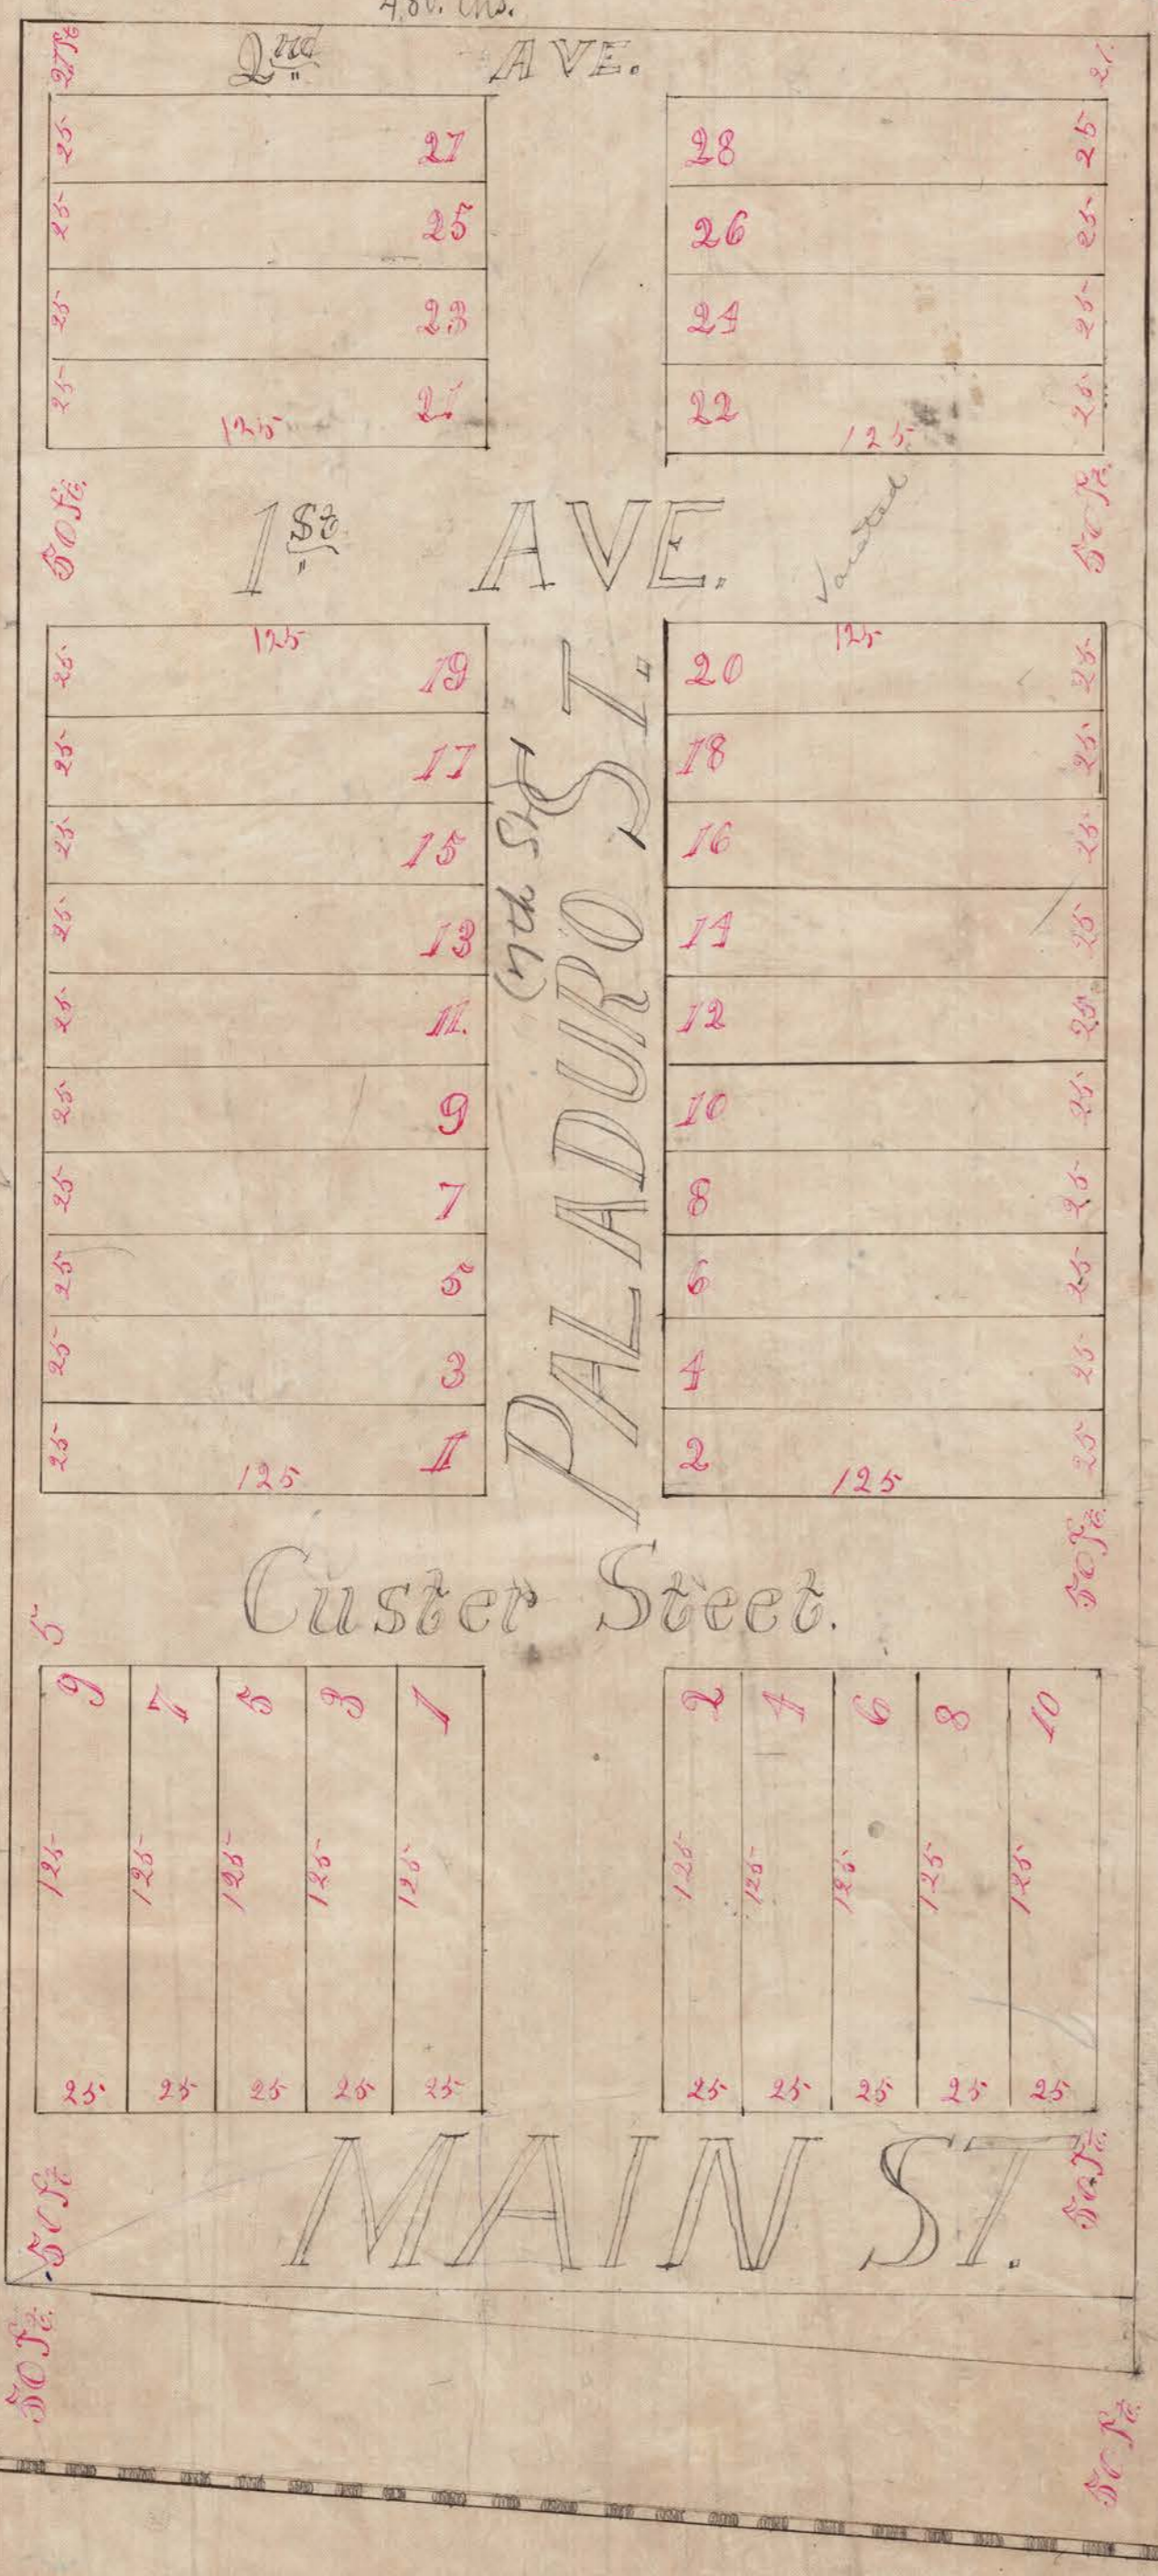 4.80. chs.
2nd AVE.
27ft 21.
25 27 28 25
25 25 26 25
25 23 24 25
25 21 22 25
125 125
50 ft. 1st AVE. Vacated 50 ft.
125 125
25 19 20 25
25 17 18 25
25 15 16 25
25 13 14 25
25 11. 12 25
25 9 10 25
25 7 8 25
25 5 6 25
25 3 4 25
25 1 2 25
125 125
PALADURO ST.
(7th St)
5 Custer Steet. 50 ft.
9 7 5 3 1 2 4 6 8 10
125 125 125 125 125 125 125 125 125 125
25 25 25 25 25 25 25 25 25 25
50 ft MAIN ST. 50 ft.
50 ft. 50 ft.